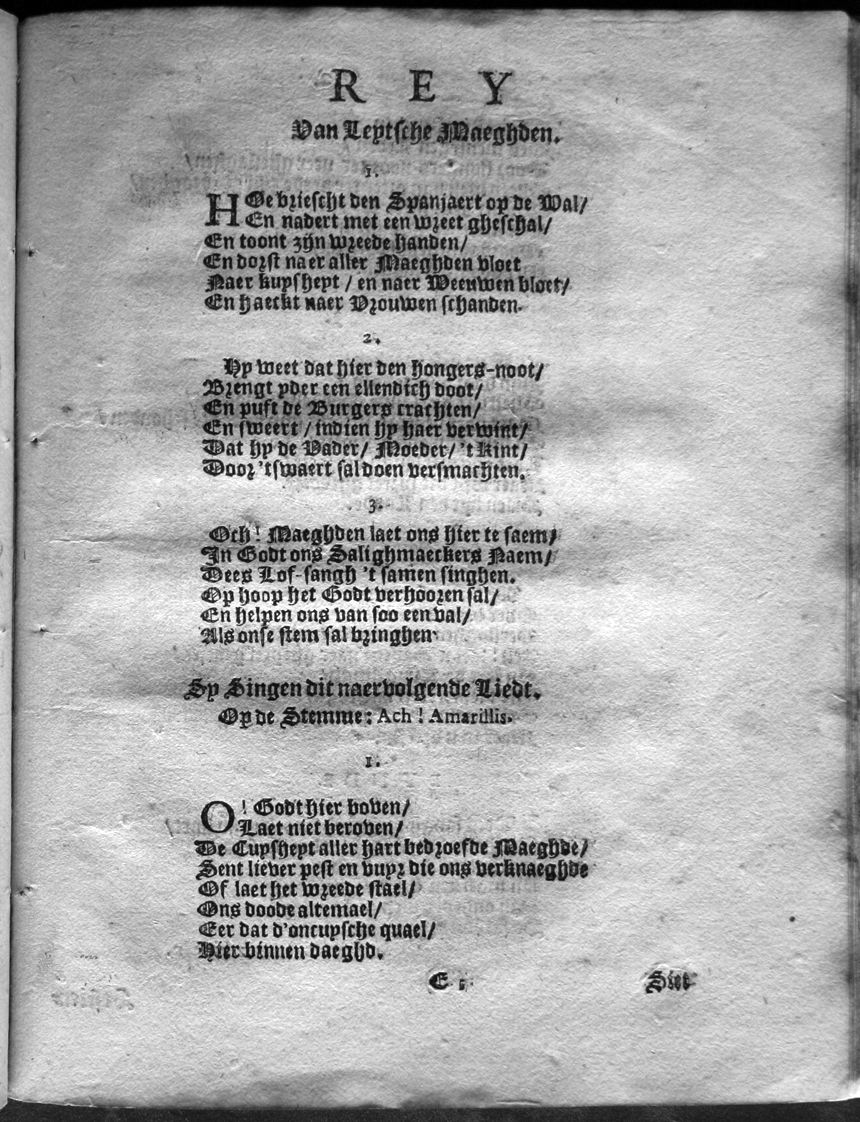 REY
Van Leytsche Maeghden.
1.
HOe briescht den Spanjaert op de Wal/
En nadert met een wreet gheschal/
En toont zijn wreede handen/
En dorst naer aller Maeghden bloet
Naer kuysheyt / en naer Weeuwen bloet/
En haeckt naer Vrouwen schanden.
2.
Hy weet dat hier den hongers-noot/
Brengt yder een ellendich doot/
En puft de Burgers crachten/
En sweert / indien hy haer verwint/
Dat hy de Vader/ Moeder/ 't kint/
Door 't swaert sal doen versmachten.
3.
Och! Maeghden laet ons hier te saem/
In Godt ons Salighmaeckers Naem/
Dees Lof-sangh 't samen singhen.
Op hoop het Godt verhooren sal/
En helpen ons van soo een val/
Als onse stem sal bringhen.
Sy Singen dit naervolgende Liedt.
Op de Stemme: Ach! Amarillis.
1.
O! Godt hier boven/
Laet niet beroven/
De Cuysheyt aller hart bedroefde Maeghde/
Sent liever pest en vuyr die ons verknaeghde
Of laet het wreede stael/
Ons doode altemael/
Eer dat d'oncuysche quael/
Hier binnen daeghd.
E
Siet